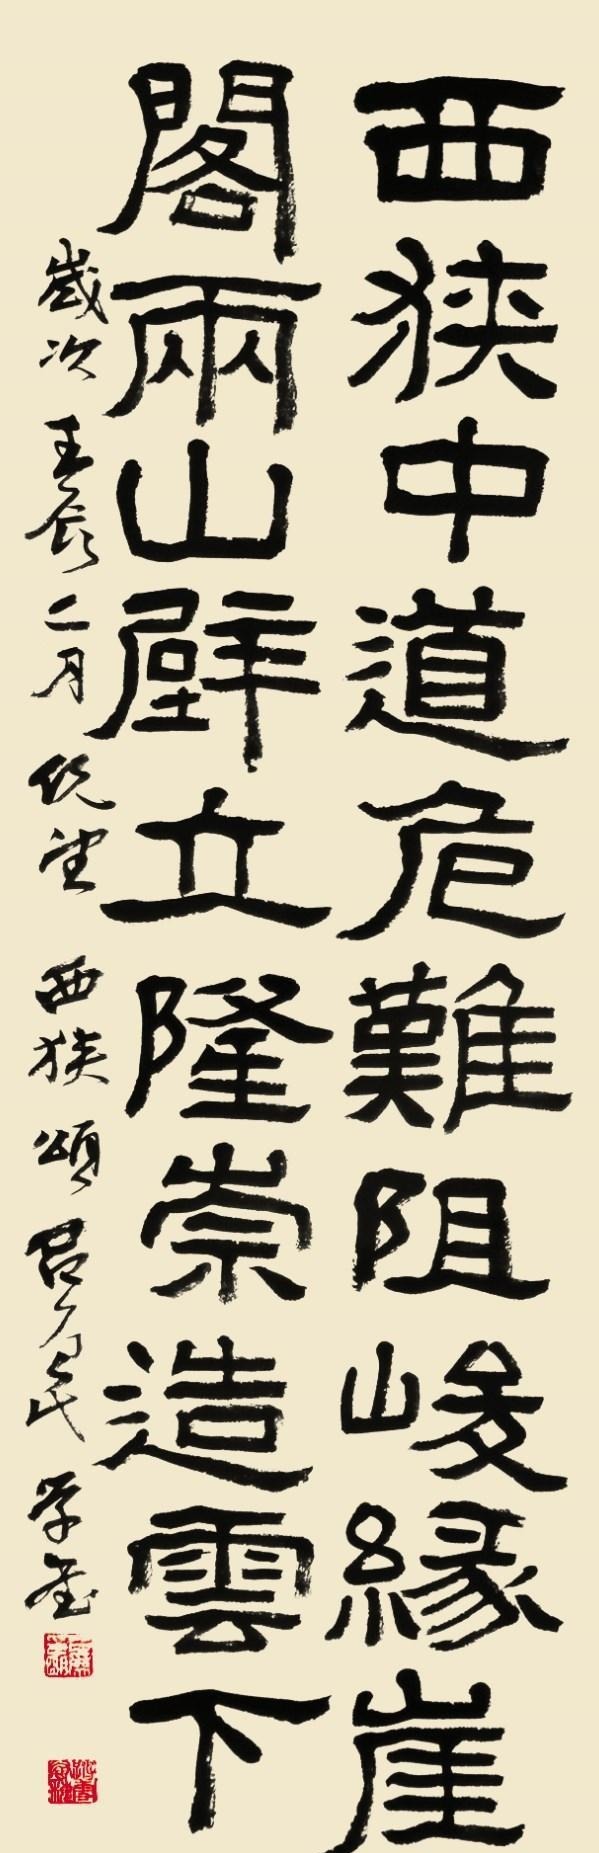 西狭中道危難阻峻緣崖
閣兩山壁立隆崇造雲下
歲次壬辰二月 西狹頌